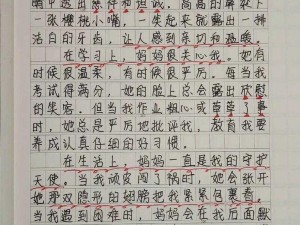 睛中透出慈祥和坦诚。高高的鼻梁下
一张樱桃小嘴，一笑起来就露出一排
洁白的牙齿，让人感到亲切和温暖。
在学习上，妈妈很关心我。她有
时候很温柔，有时候很严厉。每当我
考试得满分，她的脸上总会露出欣慰
的笑容。但当我作业粗心或草草了事
时，她总是严厉地批评我，教育我要
养成认真仔细的好习惯。
在生活上，妈妈一直是我的守护
天使。当我顽皮闯了祸时，她会张开
她那双隐形的翅膀把我紧紧包裹着。
当我遇到困难时，妈妈会在我后面默